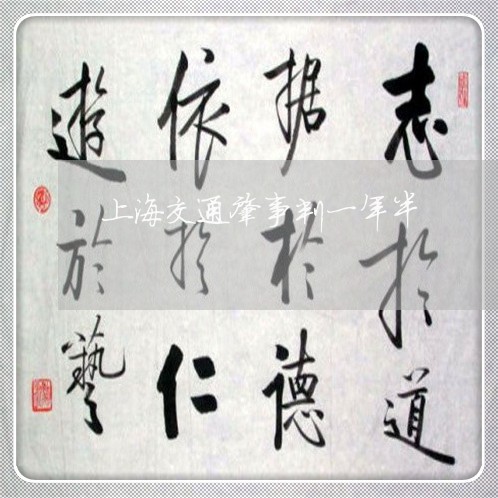 志於道
据於德
依於仁
遊於藝
上海交通肇事判一年半